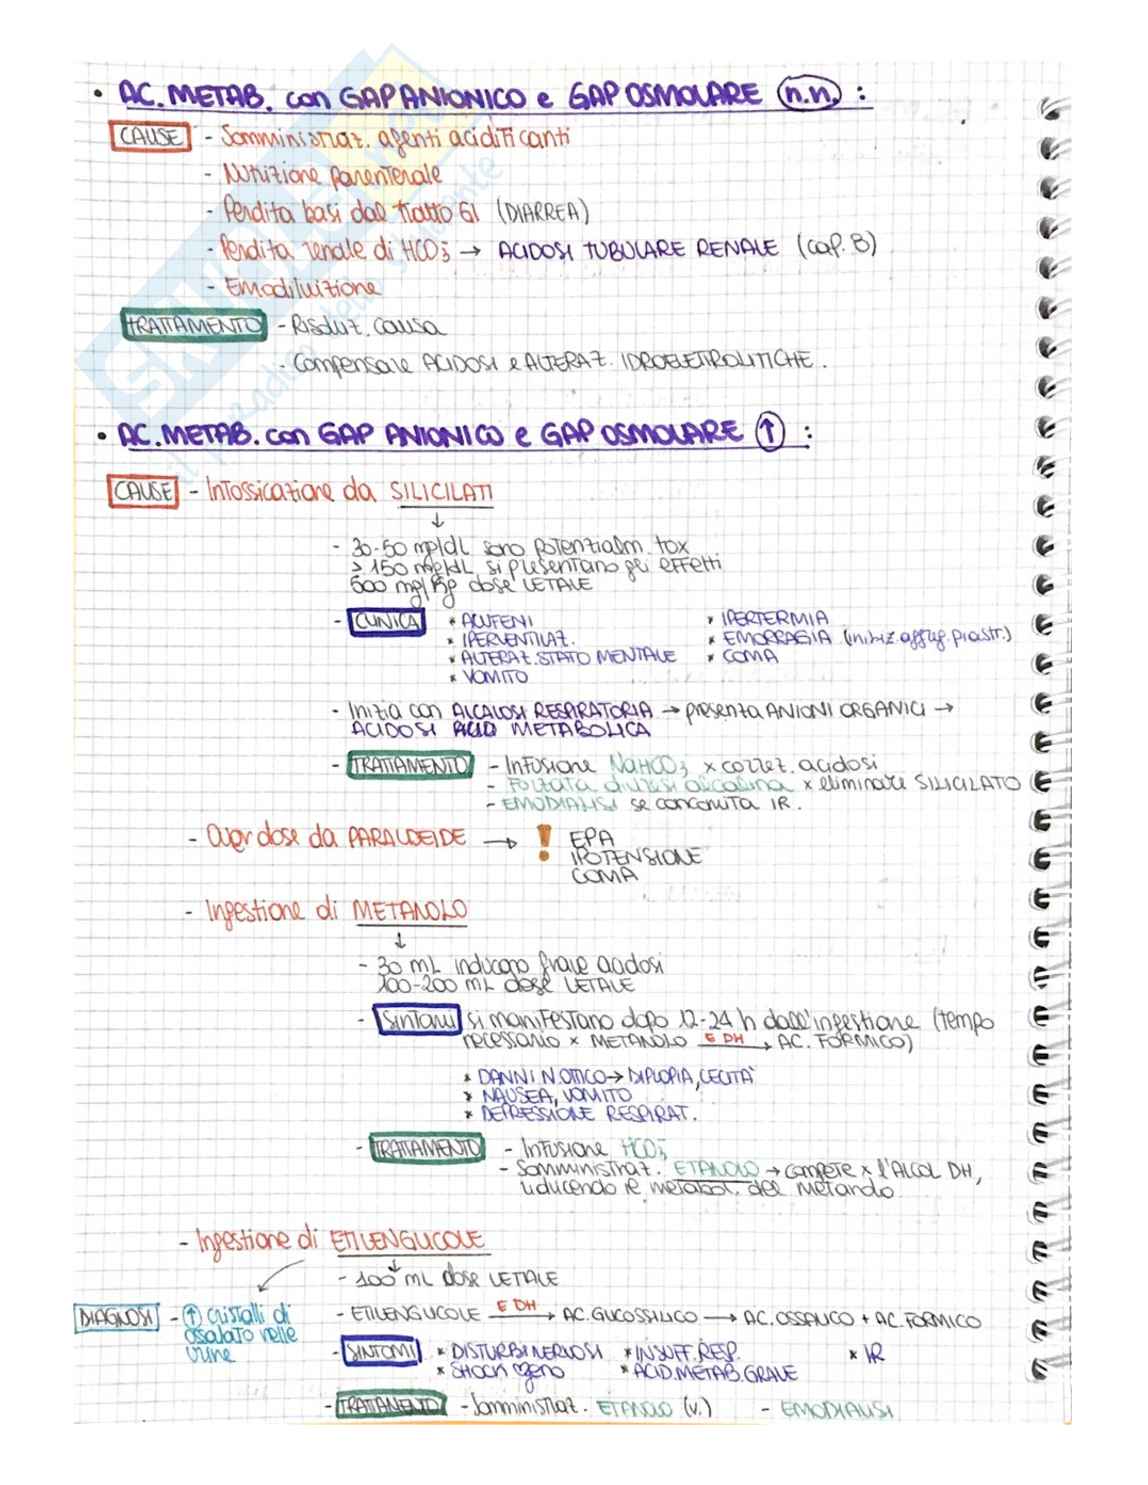 • AC. METAB. con GAP ANIONICO e GAP OSMOLARE (n.n.) :
CAUSE - Somministraz. agenti acidificanti
- Nutrizione parenterale
- Perdita basi dal tratto GI (DIARREA)
- Perdita renale di HCO3⁻ → ACIDOSI TUBULARE RENALE (cap. B)
- Emodiluizione
TRATTAMENTO - Risoluz. causa
- Compensare ACIDOSI e ALTERAZ. IDROELETROLITICHE.
• AC. METAB. con GAP ANIONICO e GAP OSMOLARE ↑ :
CAUSE - Intossicazione da SILICILATI
↓
- 30-50 mg/dL sono potenzialm. tox
≥ 150 mg/dL si presentano gli effetti
500 mg/Kg dose LETALE
- CLINICA * ACUFENI * IPERTERMIA
* IPERVENTILAZ. * EMORRAGIA (inibiz. aggreg. piastr.)
* ALTERAZ. STATO MENTALE * COMA
* VOMITO
- Inizia con ALCALOSI RESPIRATORIA → presenta ANIONI ORGANICI →
ACIDOSI METABOLICA
- TRATTAMENTO - Infusione NaHCO3 x correz. acidosi
- Forzata diuresi alcalina x eliminare SILICILATO
- EMODIALISI se concomita IR.
- Overdose da PARALDEIDE → ! EPA
IPOTENSIONE
COMA
- Ingestione di METANOLO
↓
- 30 mL inducono grave acidosi
100-200 mL dose LETALE
- Sintomi si manifestano dopo 12-24 h dall'ingestione (tempo
necessario x METANOLO E DH → AC. FORMICO)
* DANNI N. OTTICO → DIPLOPIA, CECITÀ
* NAUSEA, VOMITO
* DEPRESSIONE RESPIRAT.
- TRATTAMENTO - Infusione HCO3⁻
- Somministraz. ETANOLO → compete x l'ALCOL DH,
riducendo il metabol. del metanolo
- Ingestione di ETILENGLICOLE
↓
- 100 mL dose LETALE
DIAGNOSI - ↑ cristalli di
ossalato nelle
urine
- ETILENGLICOLE E DH → AC. GLICOSSILICO → AC. OSSALICO + AC. FORMICO
- SINTOMI * DISTURBI NERVOSI * INSUFF. RESP. * IR
* SHOCK * ACID. METAB. GRAVE
- TRATTAMENTO - Somministraz. ETANOLO (v.) - EMODIALISI